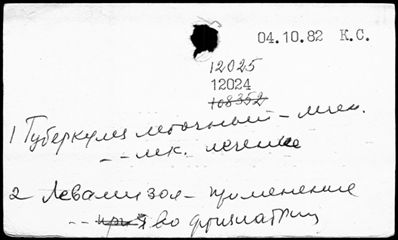 04.10.82 К.С.
12025
12024
108352
1 Туберкулез легочный - лек.
-- лек. лечение
2 Левамизол - применение
-- во фтизиатрии